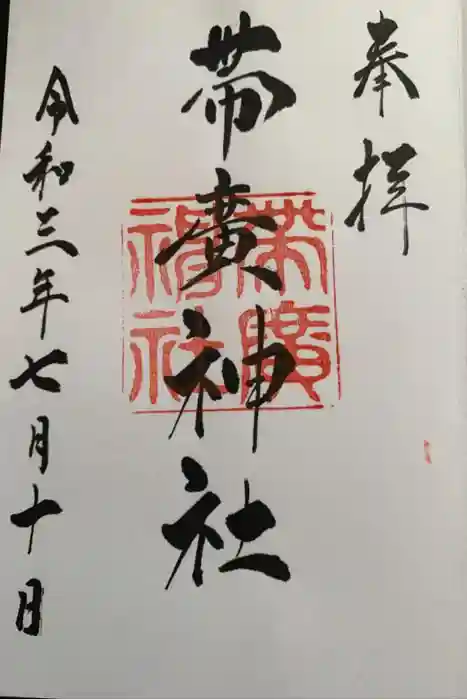 奉拝
帯廣神社
帯廣神社
令和三年七月十日